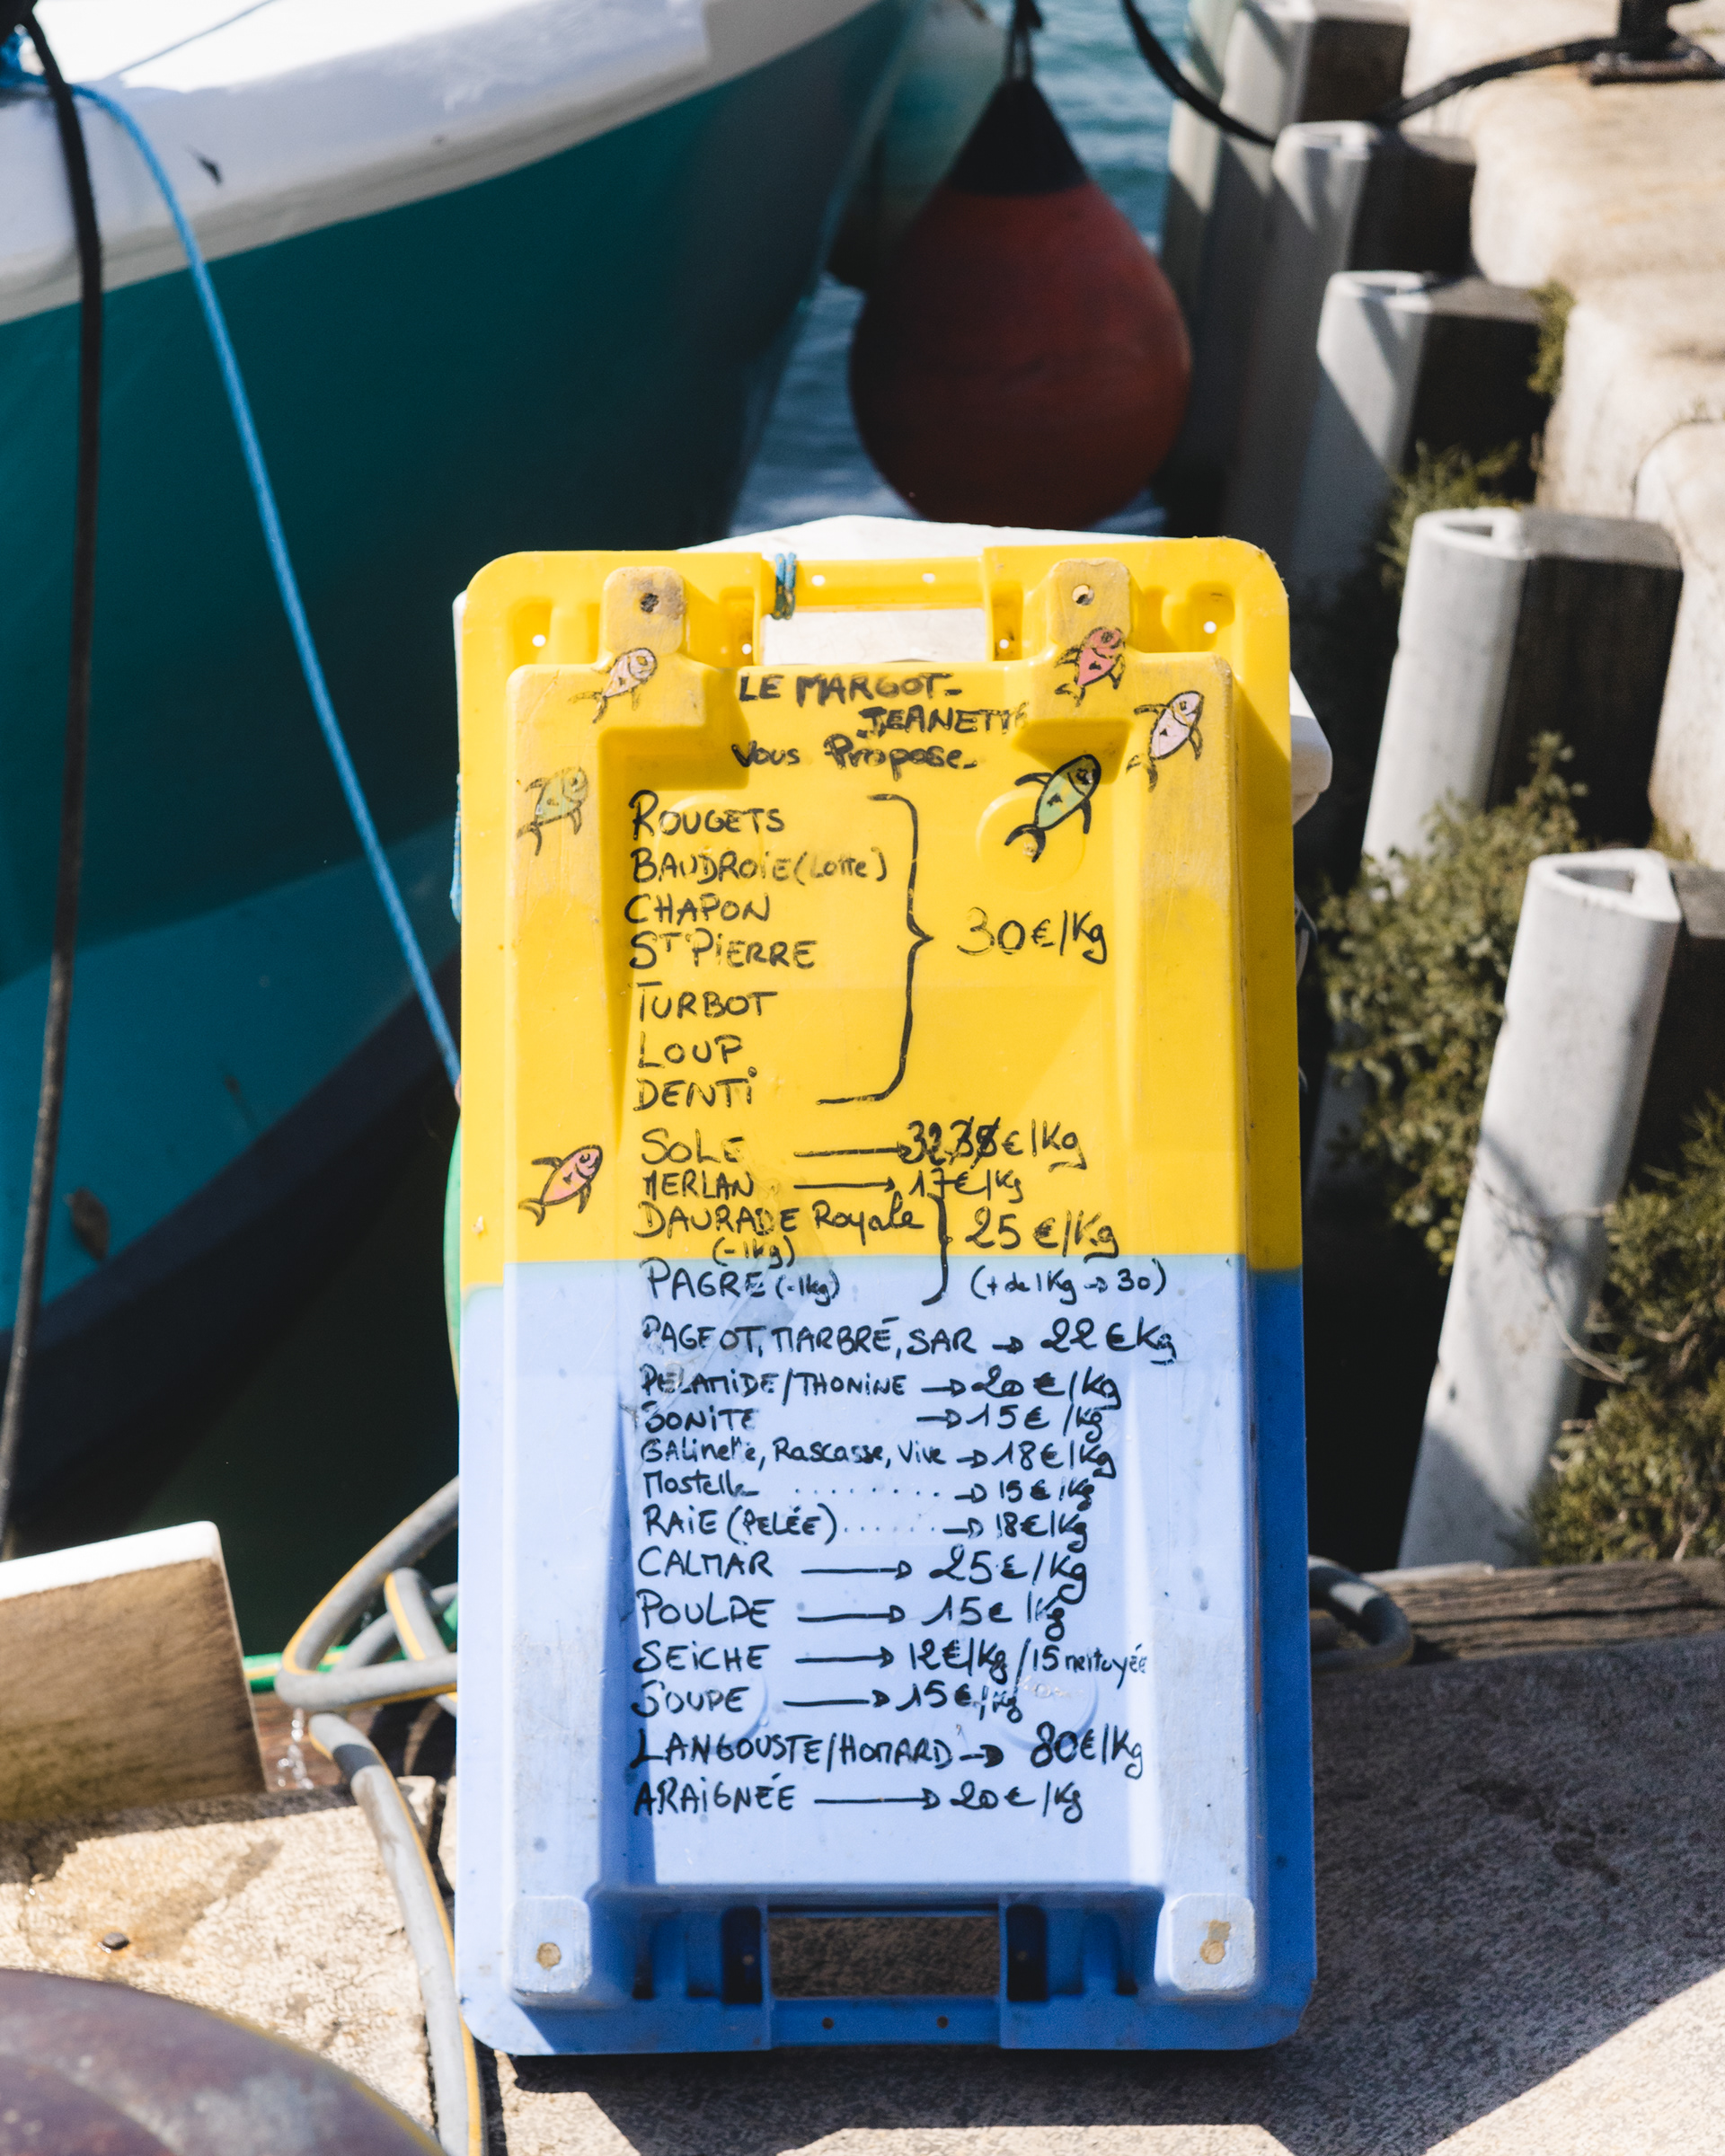 LE MARGOT-
JEANETTE
Vous Propose-
ROUGETS
BAUDROIE (Lotte)
CHAPON
ST PIERRE
30€/Kg
TURBOT
LOUP
DENTI
SOLE → 32 €/Kg
MERLAN → 17€/Kg
DAURADE Royale
(-1kg)
25 €/Kg
PAGRE (-1kg) (+ de 1Kg → 30)
PAGEOT, MARBRÉ, SAR → 22 € Kg
PELAMIDE/THONINE → 20 €/Kg
BONITE → 15€ /Kg
GALinette, Rascasse, Vive → 18€/Kg
Mostelle ........ → 15 € /Kg
RAIE (PELÉE)...... → 18€/Kg
CALMAR → 25€/Kg
POULPE → 15€ /Kg
SEICHE → 12€/Kg /15 nettoyée
SOUPE → 15€/Kg
LANGOUSTE/HOMARD → 80€/Kg
ARAIGNÉE → 20€/Kg